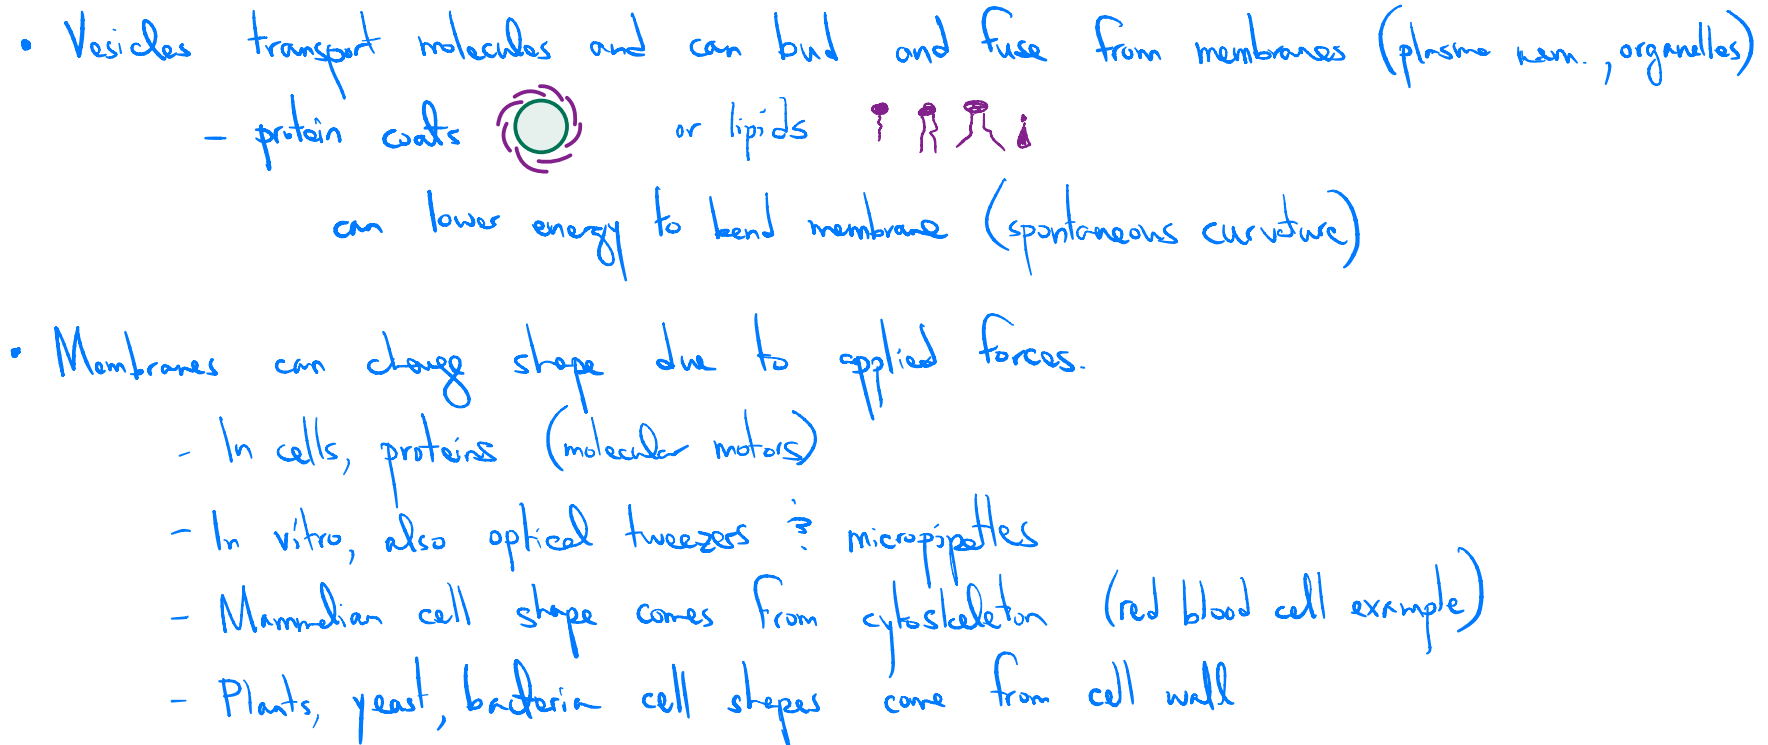 • Vesicles transport molecules and can bud and fuse from membranes (plasma mem., organelles)
- protein coats or lipids
can lower energy to bend membrane (spontaneous curvature)
• Membranes can change shape due to applied forces.
- In cells, proteins (molecular motors)
- In vitro, also optical tweezers & micropipettes
- Mammalian cell shape comes from cytoskeleton (red blood cell example)
- Plants, yeast, bacteria cell shapes come from cell wall